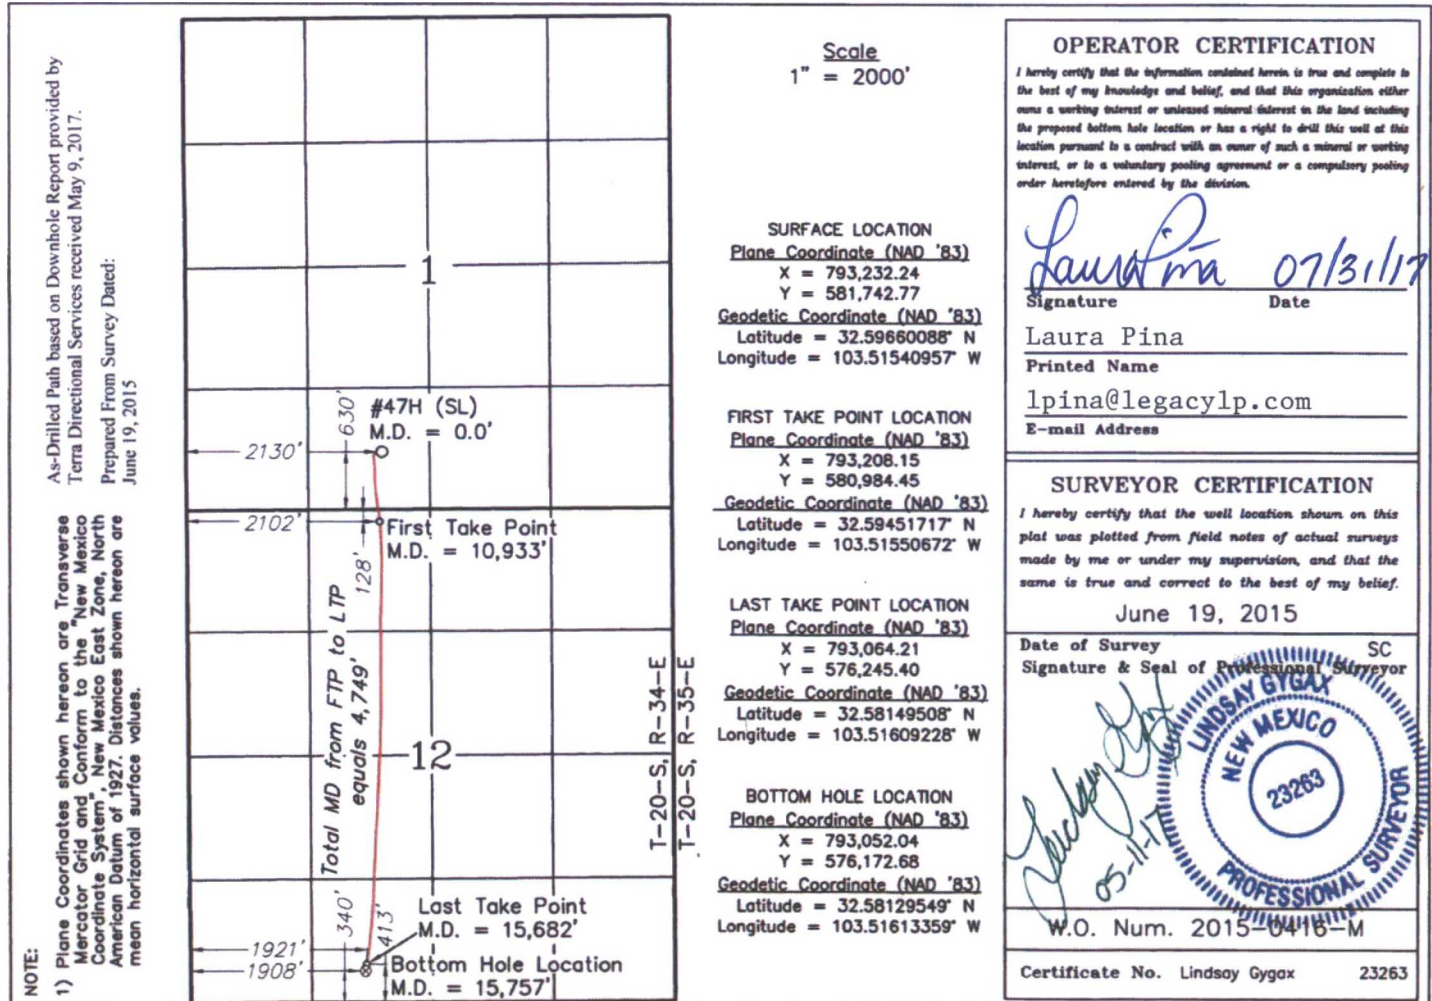 NOTE:
1) Plane Coordinates shown hereon are Transverse
Mercator Grid and Conform to the "New Mexico
Coordinate System", New Mexico East Zone, North
American Datum of 1927. Distances shown hereon are
mean horizontal surface values.
As-Drilled Path based on Downhole Report provided by
Terra Directional Services received May 9, 2017.
Prepared From Survey Dated:
June 19, 2015
1
630'
#47H (SL)
M.D. = 0.0'
2130'
2102'
First Take Point
M.D. = 10,933'
128'
Total MD from FTP to LTP
equals 4,749'
12
T-20-S, R-34-E
T-20-S, R-35-E
340'
413'
Last Take Point
M.D. = 15,682'
1921'
1908'
Bottom Hole Location
M.D. = 15,757'
Scale
1" = 2000'
SURFACE LOCATION
Plane Coordinate (NAD '83)
X = 793,232.24
Y = 581,742.77
Geodetic Coordinate (NAD '83)
Latitude = 32.59660088° N
Longitude = 103.51540957° W
FIRST TAKE POINT LOCATION
Plane Coordinate (NAD '83)
X = 793,208.15
Y = 580,984.45
Geodetic Coordinate (NAD '83)
Latitude = 32.59451717° N
Longitude = 103.51550672° W
LAST TAKE POINT LOCATION
Plane Coordinate (NAD '83)
X = 793,064.21
Y = 576,245.40
Geodetic Coordinate (NAD '83)
Latitude = 32.58149508° N
Longitude = 103.51609228° W
BOTTOM HOLE LOCATION
Plane Coordinate (NAD '83)
X = 793,052.04
Y = 576,172.68
Geodetic Coordinate (NAD '83)
Latitude = 32.58129549° N
Longitude = 103.51613359° W
OPERATOR CERTIFICATION
I hereby certify that the information contained herein is true and complete to
the best of my knowledge and belief, and that this organization either
owns a working interest or unleased mineral interest in the land including
the proposed bottom hole location or has a right to drill this well at this
location pursuant to a contract with an owner of such a mineral or working
interest, or to a voluntary pooling agreement or a compulsory pooling
order heretofore entered by the division.
Laura Pina 07/31/17
Signature Date
Laura Pina
Printed Name
lpina@legacylp.com
E-mail Address
SURVEYOR CERTIFICATION
I hereby certify that the well location shown on this
plat was plotted from field notes of actual surveys
made by me or under my supervision, and that the
same is true and correct to the best of my belief.
June 19, 2015
Date of Survey SC
Signature & Seal of Professional Surveyor
Lindsay Gygax
05-11-17
LINDSAY GYGAX
NEW MEXICO
23263
PROFESSIONAL SURVEYOR
W.O. Num. 2015-0416-M
Certificate No. Lindsay Gygax 23263